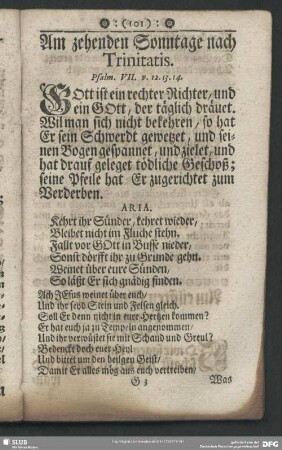 :(101):
Am zehenden Sonntage nach
Trinitatis.
Psalm. VII. v. 12. 13. 14.
GOtt ist ein rechter Richter, und
ein GOtt, der täglich dräuet.
Wil man sich nicht bekehren, so hat
Er sein Schwerdt gewetzet, und sei-
nen Bogen gespannet, und zielet, und
hat drauf geleget tödliche Geschoß;
seine Pfeile hat Er zugerichtet zum
Verderben.
ARIA.
Kehrt ihr Sünder, kehret wieder,
Bleibet nicht im Fluche stehn.
Fallt vor GOtt in Busse nieder,
Sonst dörfft ihr zu Grunde gehn.
Weinet über eure Sünden,
So läßt Er sich gnädig finden.
Ach JEsus weinet über euch/
Und ihr seyd Stein und Felsen gleich.
Soll Er denn nicht in eure Hertzen kommen?
Er hat euch ja zu Tempeln angenommen/
Und ihr verwüstet sie mit Schand und Greul?
Bedenckt doch euer Heyl
Und bittet um den heilgen Geist/
Damit Er alles mög aus euch vertreiben/
G 3 Was
SLUB
DFG